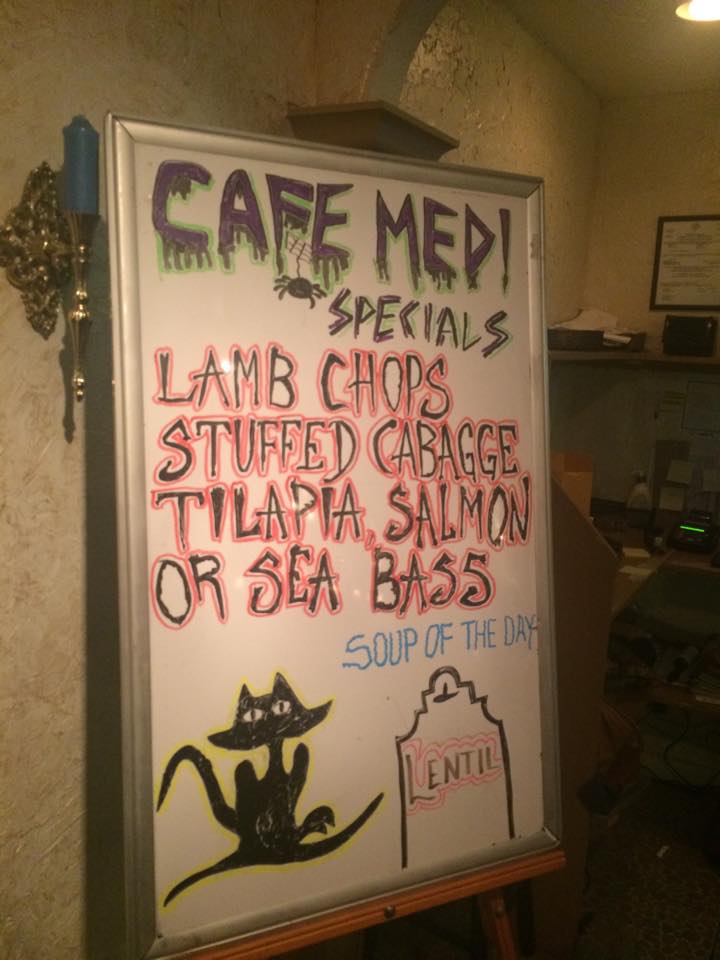 CAFE MED!
SPECIALS
LAMB CHOPS
STUFFED CABAGGE
TILAPIA, SALMON
OR SEA BASS
SOUP OF THE DAY
LENTIL